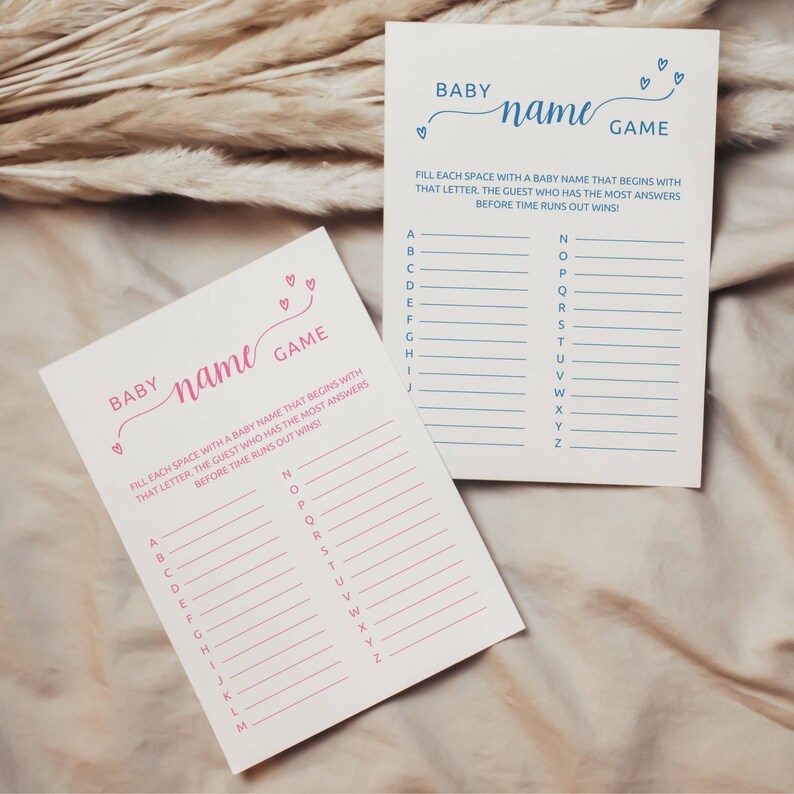 BABY name GAME
FILL EACH SPACE WITH A BABY NAME THAT BEGINS WITH
THAT LETTER. THE GUEST WHO HAS THE MOST ANSWERS
BEFORE TIME RUNS OUT WINS!
A
B
C
D
E
F
G
H
I
J
N
O
P
Q
R
S
T
U
V
W
X
Y
Z
BABY name GAME
FILL EACH SPACE WITH A BABY NAME THAT BEGINS WITH
THAT LETTER. THE GUEST WHO HAS THE MOST ANSWERS
BEFORE TIME RUNS OUT WINS!
A
B
C
D
E
F
G
H
I
J
K
L
M
N
O
P
Q
R
S
T
U
V
W
X
Y
Z